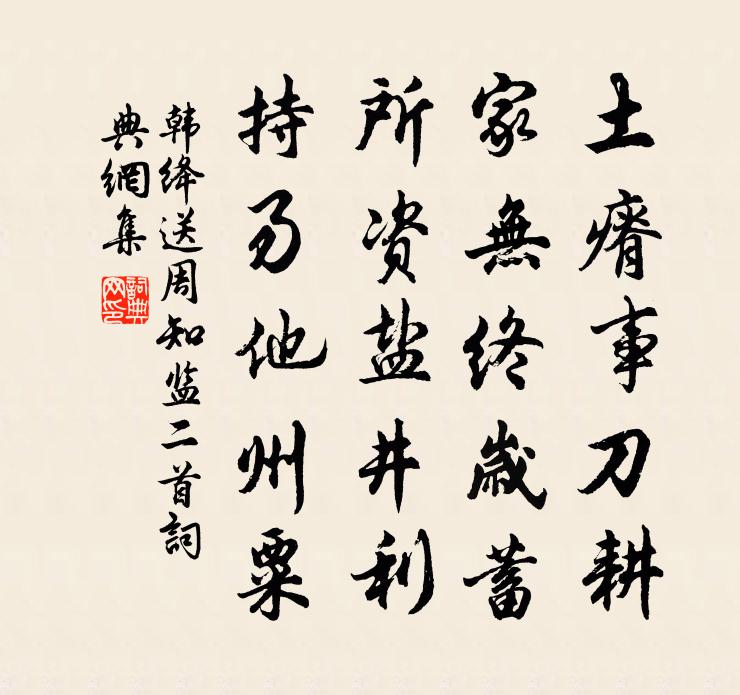 土瘠事刀耕
家無終歲蓄
所资盐井利
持易他州粟
韩绛送周知监二首詞
典網集
詞典
网印